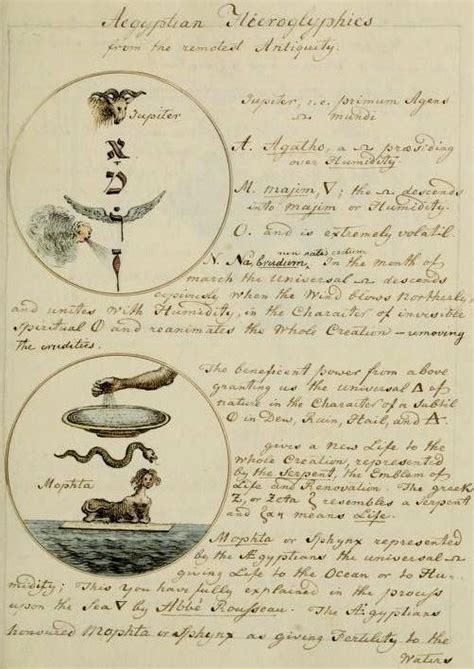 Aegyptian Hieroglyphics
from the remotest Antiquity.
Jupiter
Jupiter, i.e. primum Agens
mundi
A. Agatho, a ☊ præsiding
over Humidity
M. majim, ▽; the ☊ descends
into majim or Humidity.
O. and is extremely volatil.
N. Na, Crudum, In the month of
march the Universal ☊ descends
copiously when the Wind blows Northerly
and unites with Humidity, in the Character of invisible
Spiritual and reanimates the whole Creation — removing
the crudities.
The beneficent power from above
granting us the universal △ of
nature in the Character of a Subtil
in Dew, Rain, Hail, and
gives a New Life to the
whole Creation, represented
by the Serpent, the Emblem of
Life and Renovation. The greek
Z, or Zeta ζ resembles a Serpent
and means Life.
Mophta
Mophta or Sphynx represented
by the Ægyptians the universal ☊
giving Life to the Ocean or to Hu-
midity; This you have fully explained in the process
upon the Sea ▽ by Abbé Rousseau. The Ægyptians
honoured Mophta or Sphynx as giving Fertility to the
Waters